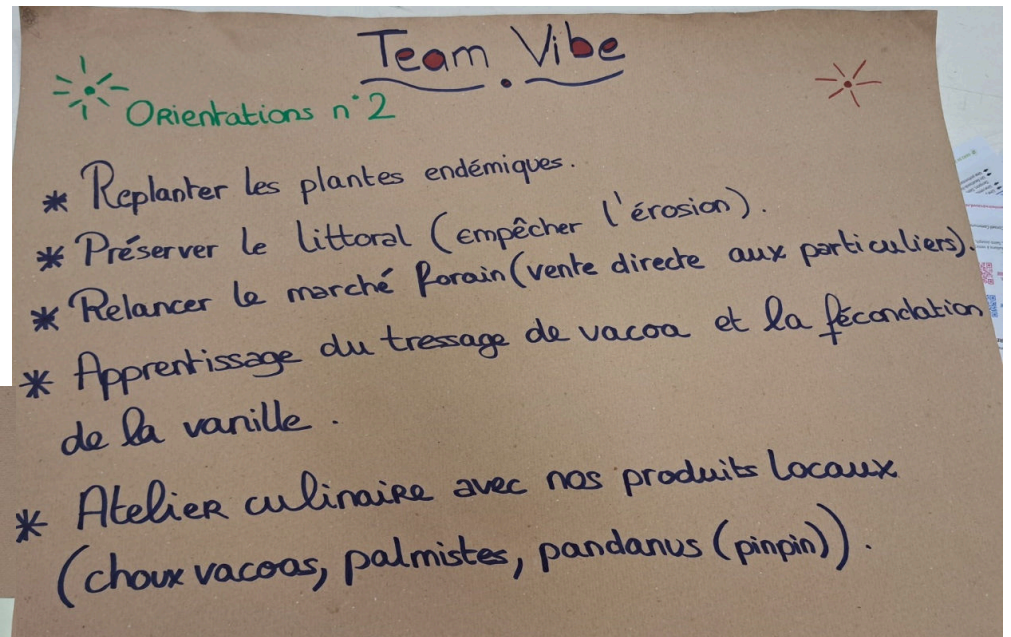 Team Vibe
Orientations n°2
* Replanter les plantes endémiques.
* Préserver le littoral (empêcher l'érosion).
* Relancer le marché forain (vente directe aux particuliers).
* Apprentissage du tressage de vacoa et la fécondation
de la vanille.
* Atelier culinaire avec nos produits locaux
(choux vacoas, palmistes, pandanus (pinpin)).